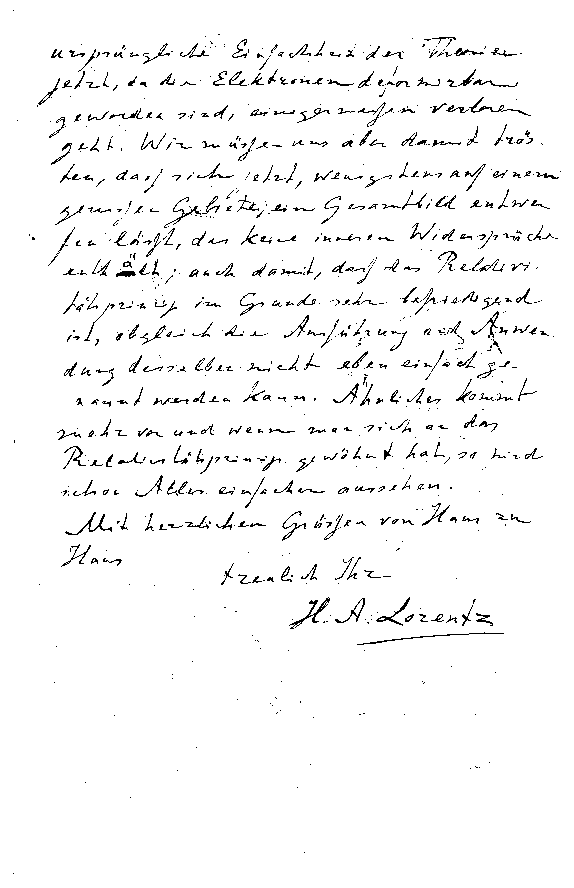 ursprüngliche Einfachheit der Theorien
jetzt, da die Elektronen deformirbar
geworden sind, einigermassen verloren
geht. Wir müssen uns aber damit trös-
ten, dass sich jetzt, wenigstens auf einem
gewissen Gebiete, ein Gesamtbild entwer
fen lässt, das keine inneren Widersprüche
enthält; auch damit, dass das Relativi-
tätsprincip im Grunde sehr befriedigend
ist, obgleich die Ausführung und Anwen
dung desselben nicht eben einfach ge-
nannt werden kann. Ähnliches kommt
mehr vor und wenn man sich an das
Relativitätsprincip gewöhnt hat, so wird
schon Alles einfacher aussehen.
Mit herzlichen Grüssen von Haus zu
Haus
treulich Ihr
H. A. Lorentz